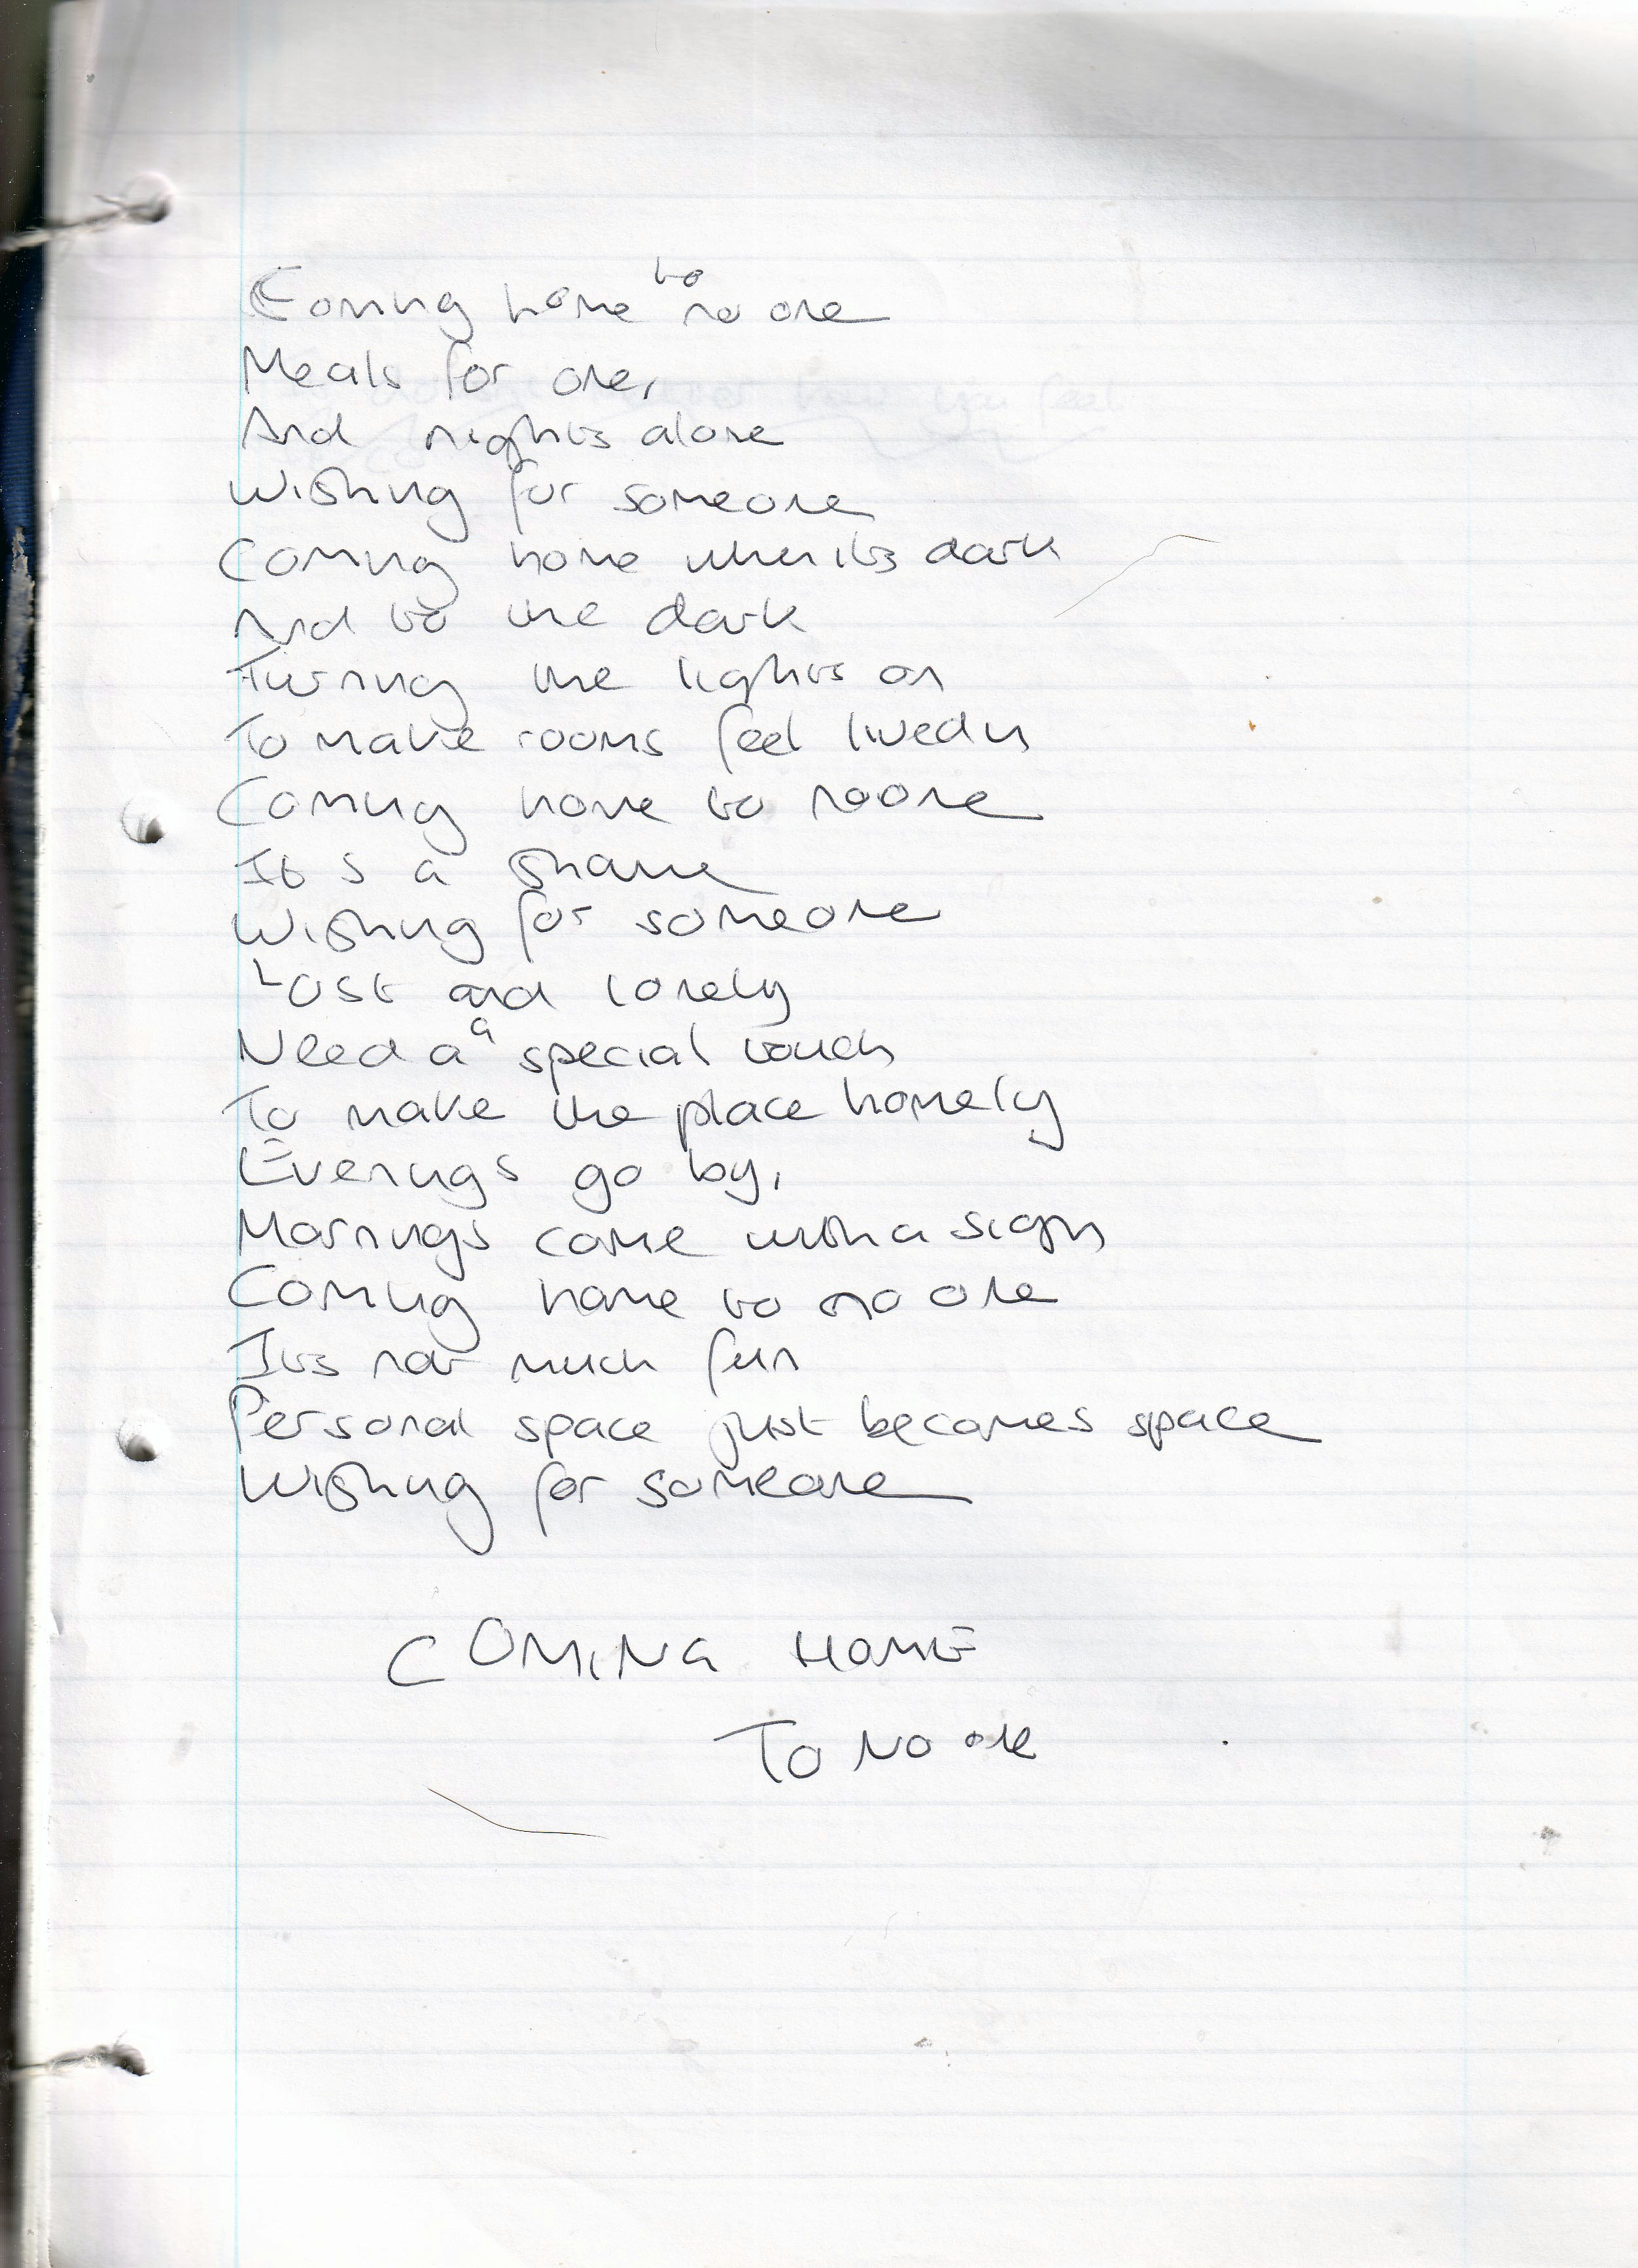 Coming home to no one
Meals for one,
And nights alone
Wishing for someone
Coming home when its dark
And to the dark
Turning the lights on
To make rooms feel lived in
Coming home to no one
It s a shame
Wishing for someone
Lost and lonely
Need a a special touch
To make the place homely
Evenings go by,
Mornings come with a sigh
Coming home to no one
Its not much fun
Personal space just becomes space
Wishing for someone
COMING HOME
TO NO ONE